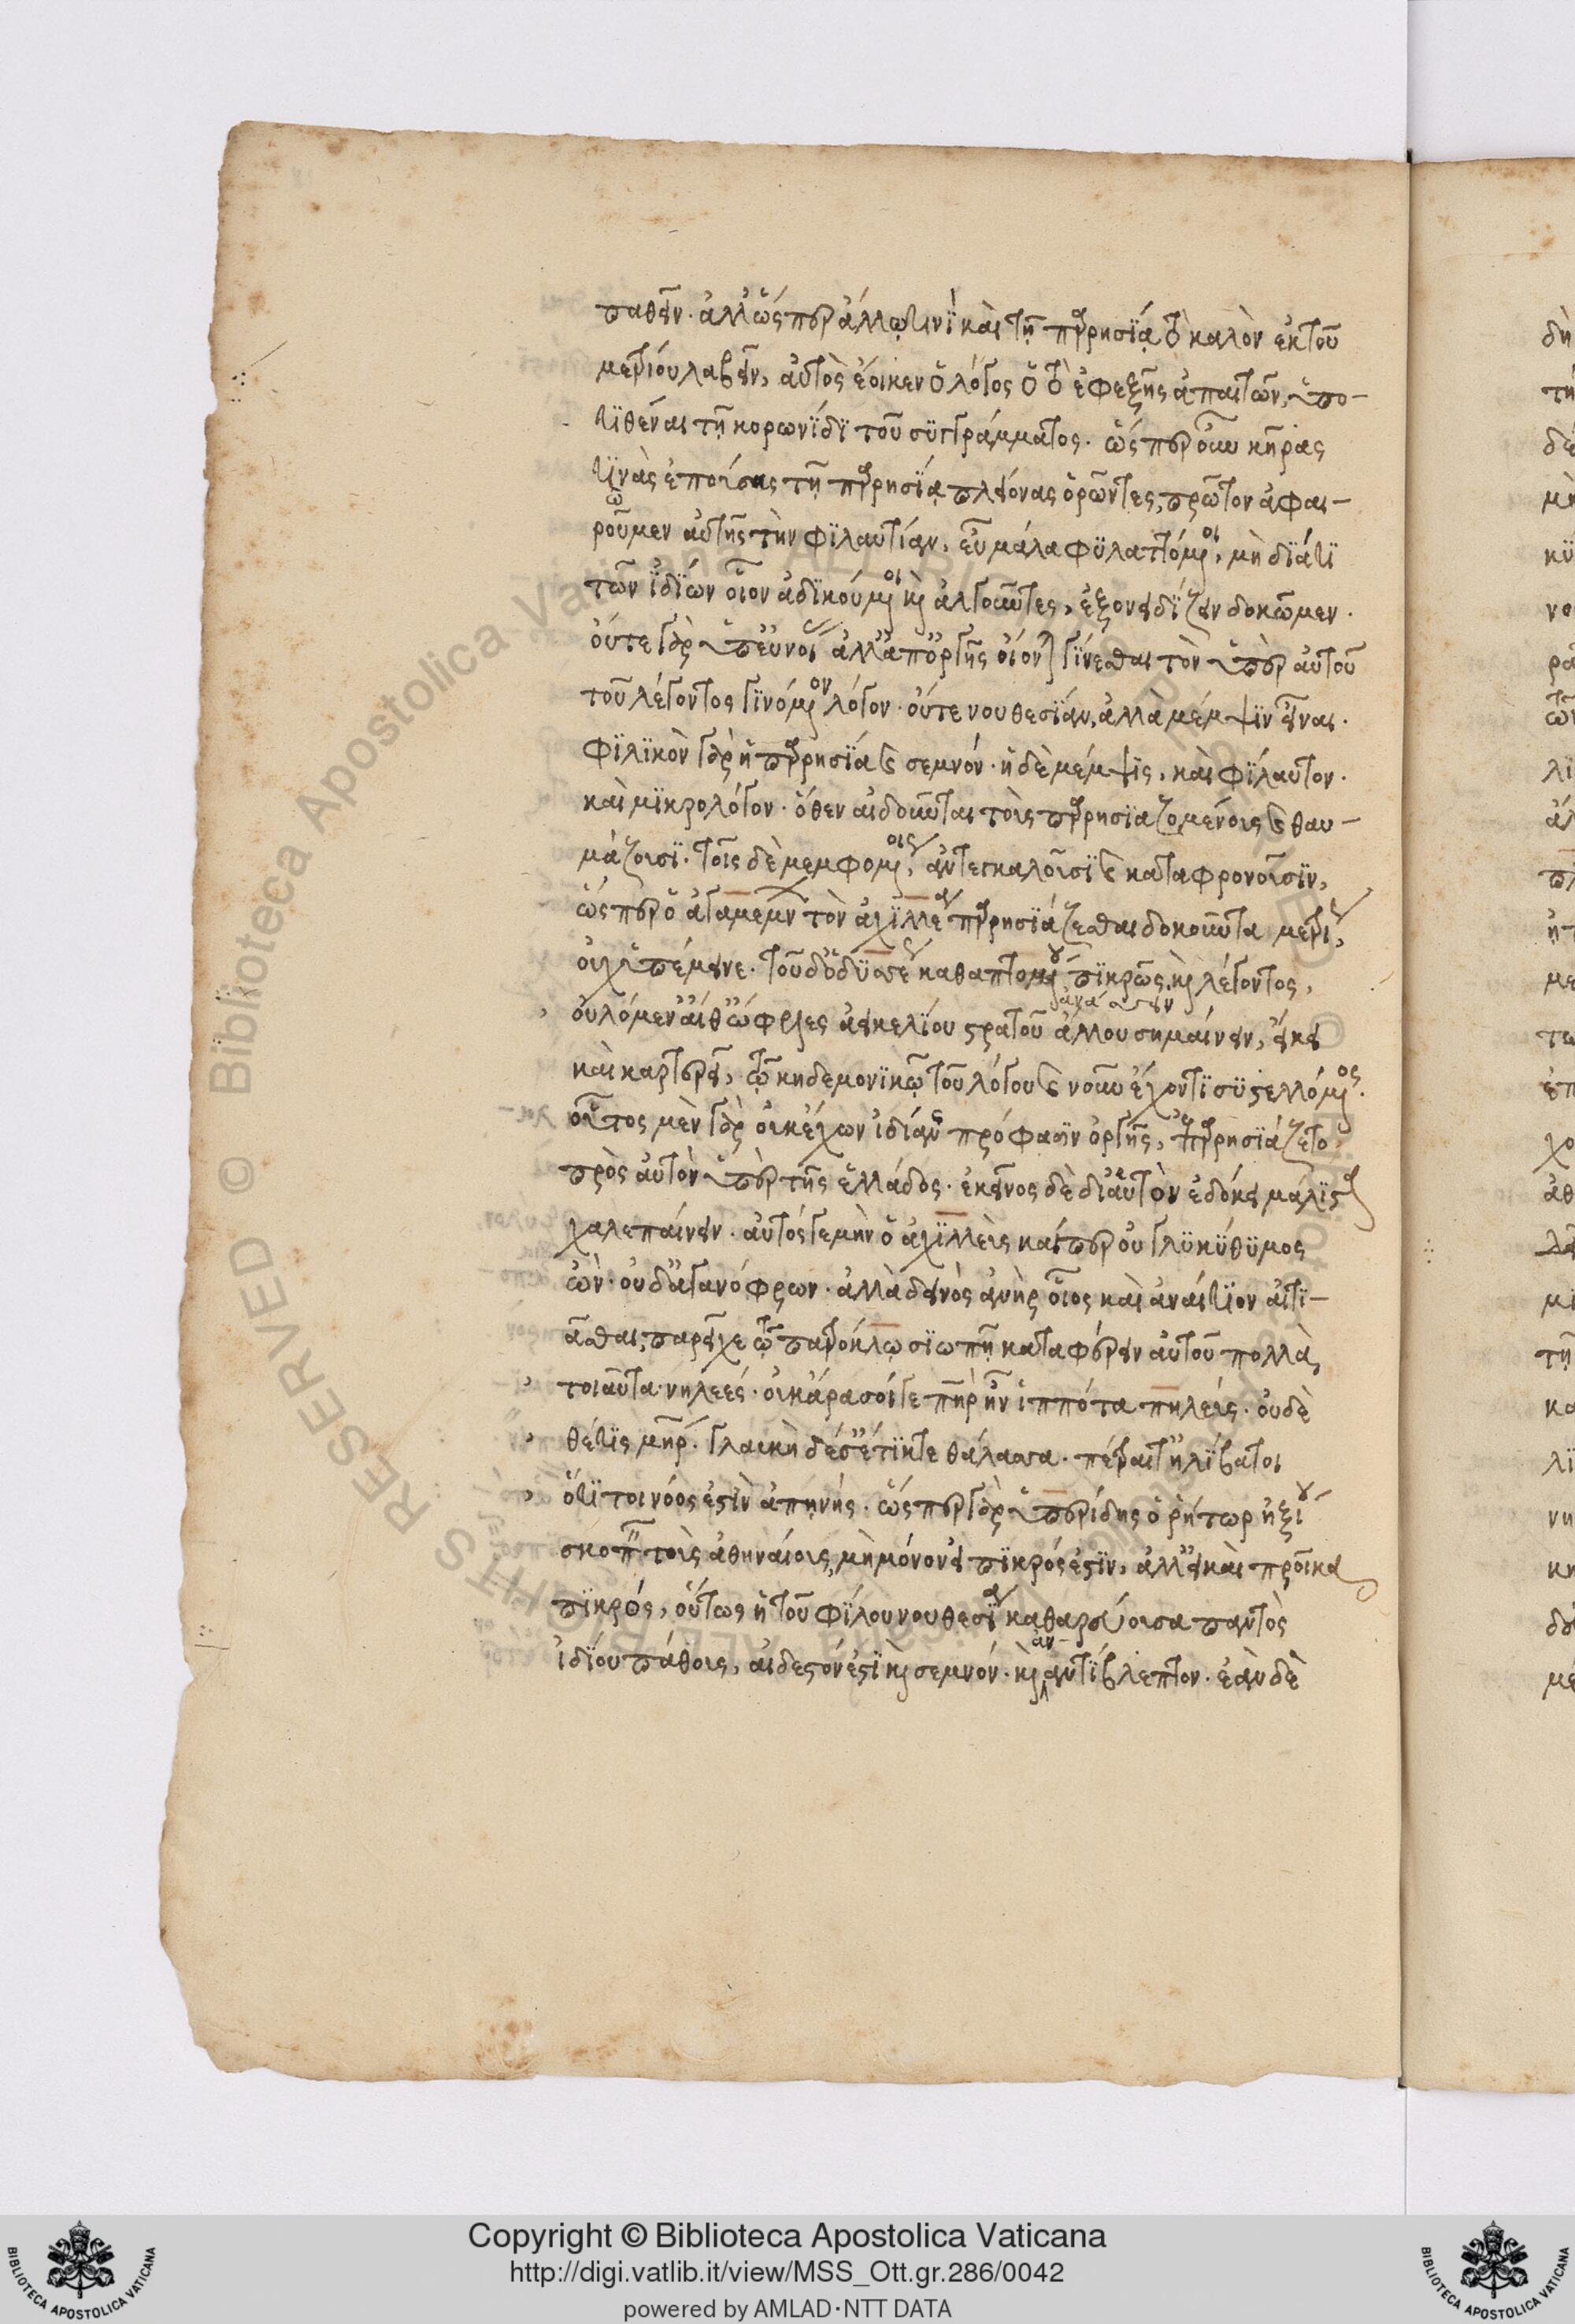 παθεῖν· ἀλλ' ὥσπερ ἄλλῳ τινὶ καὶ τῇ παρρησίᾳ τὸ καλὸν ἐκ τοῦ
μετρίου λαβεῖν, αὐτὸς ἔοικεν ὁ λόγος ὁ τὸ ἐφεξῆς ἀπαιτῶν, ὑπο-
τιθέναι τῇ κορωνίδι τοῦ συγγράμματος. ὥσπερ οὖν κῆρας
τινὰς ἐπούσας τῇ παρρησίᾳ πλείονας ὁρῶντες, πρῶτον ἀφαι-
ροῦμεν αὐτῆς τὴν φιλαυτίαν, εὖ μάλα φυλαττόμενοι, μὴ διά τι
ω
τῶν ἰδίων οἷον ἀδικούμενοι καὶ ἀλγοῦντες, ἐξονειδίζειν δοκῶμεν.
οὔτε γὰρ ὑπ' εὐνοίας ἀλλ' ἀπ' ὀργῆς οἴονται γίνεσθαι τὸν ὑπὲρ αὐτοῦ
τοῦ λέγοντος γινόμενον λόγον· οὔτε νουθεσίαν, ἀλλὰ μέμψιν εἶναι.
φιλικὸν γὰρ ἡ παρρησία καὶ σεμνόν· ἡ δὲ μέμψις, καὶ φίλαυτον.
καὶ μικρολόγον· ὅθεν αἰδοῦνται τοὺς παρρησιαζομένους καὶ θαυ-
μάζουσι. τοῖς δὲ μεμφομένοις, ἀντεγκαλοῦσι καὶ καταφρονοῦσιν,
ὥσπερ ὁ ἀγαμέμνων τὸν ἀχιλλέα παρρησιάζεσθαι δοκοῦντα μετρίως,
οὐχ ὑπέμεινε. τοῦ δ' ὀδυσσέως καθαπτομένου πικρῶς. καὶ λέγοντος,
οὐλόμεν' αἴθ' ὤφελες ἀεικελίου στρατοῦ ἄλλου σημαίνειν, εἴκει
ἀνάσσειν
καὶ καρτερεῖ, τῷ κηδεμονικῷ τοῦ λόγου καὶ νοῦν ἔχοντι συστελλόμενος.
οὗτος μὲν γὰρ οὐκ ἔχων ἰδίαν πρόφασιν ὀργῆς, ἐπαρρησιάζετο
πρὸς αὐτὸν ὑπὲρ τῆς ἑλλάδος. ἐκεῖνος δὲ δι' αὑτὸν ἐδόκει μάλιστα
χαλεπαίνειν. αὐτός γε μὴν ὁ ἀχιλλεὺς καίπερ οὐ γλυκύθυμος
ὢν· οὐδ' ἀγανόφρων· ἀλλὰ δεινὸς ἀνὴρ οἷος καὶ ἀναίτιον αἰτι-
ᾶσθαι, παρεῖχε τῷ πατρόκλῳ σιωπῇ καταφέρειν αὐτοῦ πολλὰ
τοιαῦτα· νηλεές· οὐκ ἄρα σοί γε πατὴρ ἦν ἱππότα πηλεύς· οὐδὲ
θέτις μήτηρ. γλαυκὴ δέ σ' ἔτικτε θάλασσα· πέτραι τ' ἠλίβατοι
ὅτι τοι νόος ἐστὶν ἀπηνής. ὥσπερ γὰρ ὑπερίδης ὁ ῥήτωρ ἠξίου
σκοπεῖν τοὺς ἀθηναίους, μὴ μόνον εἰ πικρός ἐστιν, ἀλλ' εἰ καὶ προῖκα
πικρός, οὕτως ἡ τοῦ φίλου νουθεσία καθαρεύουσα παντὸς
ἰδίου πάθους, αἰδεστόν ἐστι καὶ σεμνόν. καὶ ἀναντίβλεπτον. ἐὰν δὲ
Copyright © Biblioteca Apostolica Vaticana
http://digi.vatlib.it/view/MSS_Ott.gr.286/0042
powered by AMLAD·NTT DATA